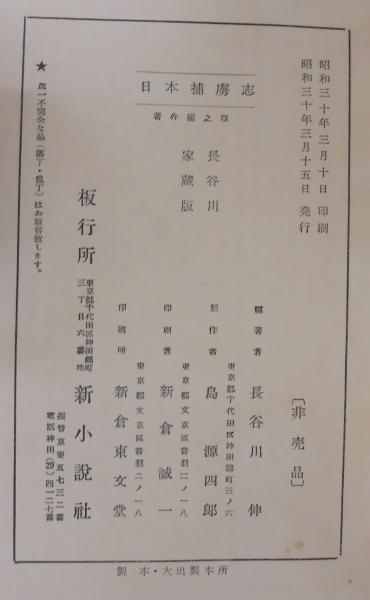 昭和三十年三月十日 印刷
昭和三十年三月十五日 発行
〔非売品〕
日本捕虜志
著作権之章
長谷川
家蔵版
編著者 長谷川伸
東京都千代田区神田錦町三ノ六
製作者 島源四郎
東京都文京區音羽二ノ一八
印刷者 新倉誠一
東京都文京區音羽二ノ一八
印刷所 新倉東文堂
板行所 東京都千代田区神田錦町三丁目六番地 新小説社
振替東京五七三二番
電話神田(29)四一二七番
★ 萬一不完全な品(落丁・亂丁)はお取替致します。
製本・大出製本所